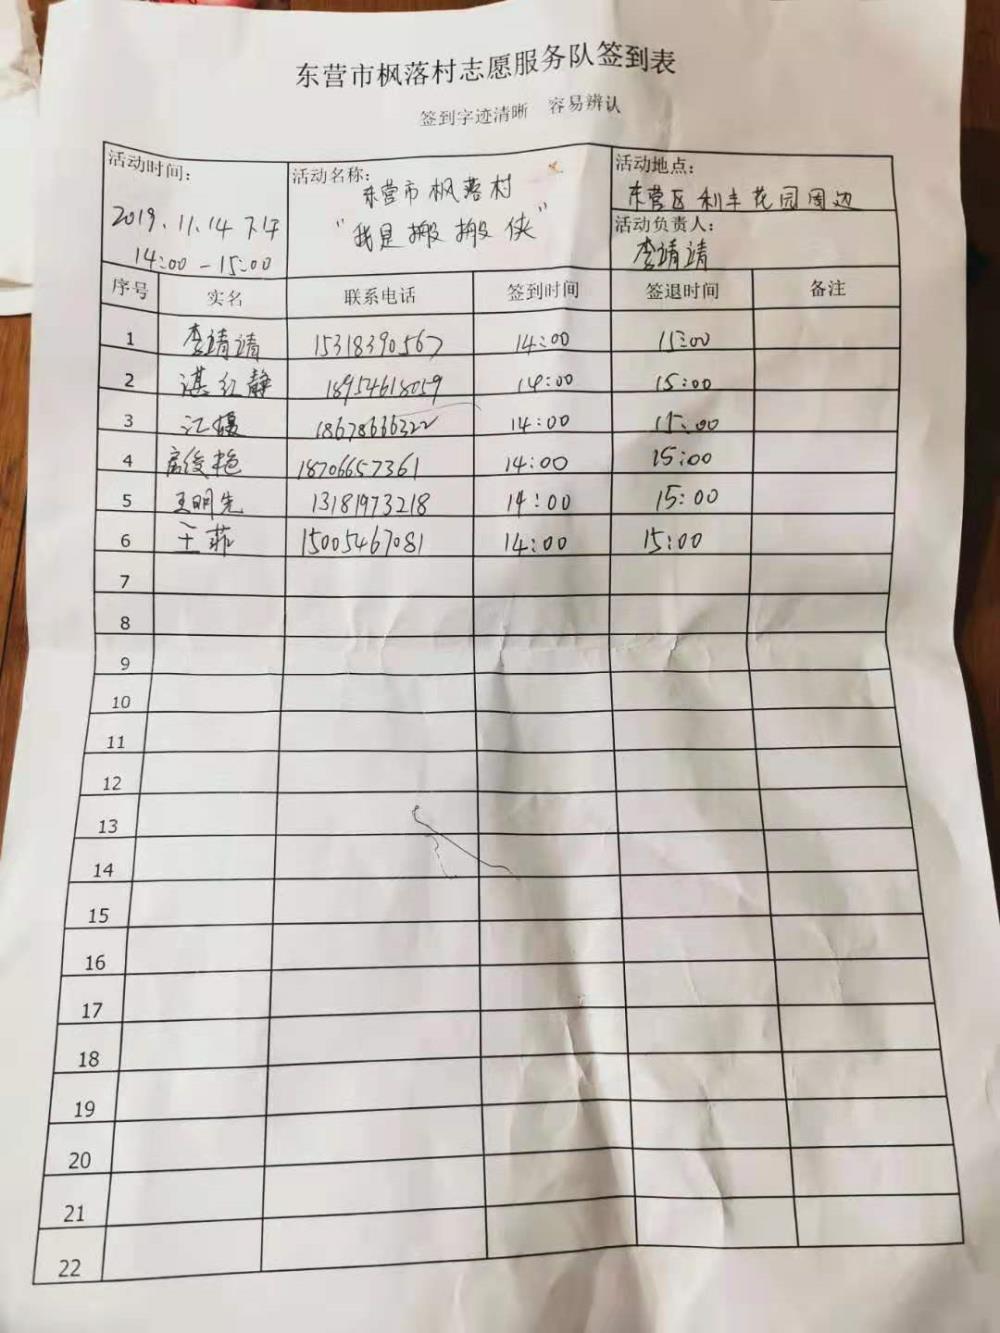 东营市枫落村志愿服务队签到表
签到字迹清晰 容易辨认
活动时间：
2019.11.14 下午
14:00-15:00
活动名称：
东营市枫落村
“我是搬搬侠”
活动地点：
东营区利丰花园周边
活动负责人：
李靖靖
序号 实名 联系电话 签到时间 签退时间 备注
1 李靖靖 15318390567 14:00 15:00
2 谌红静 18954618059 14:00 15:00
3 江 18678666322 14:00 15:00
4 房俊艳 18706657361 14:00 15:00
5 王明先 13181973218 14:00 15:00
6 王菲 15005467081 14:00 15:00
7
8
9
10
11
12
13
14
15
16
17
18
19
20
21
22